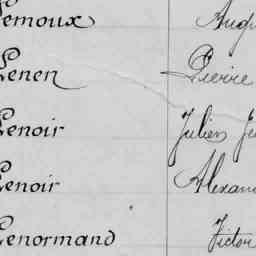 Lemoux Aug
Lenen Pierre
Lenoir Julien Je
Lenoir Alexan
Lenormand Victor